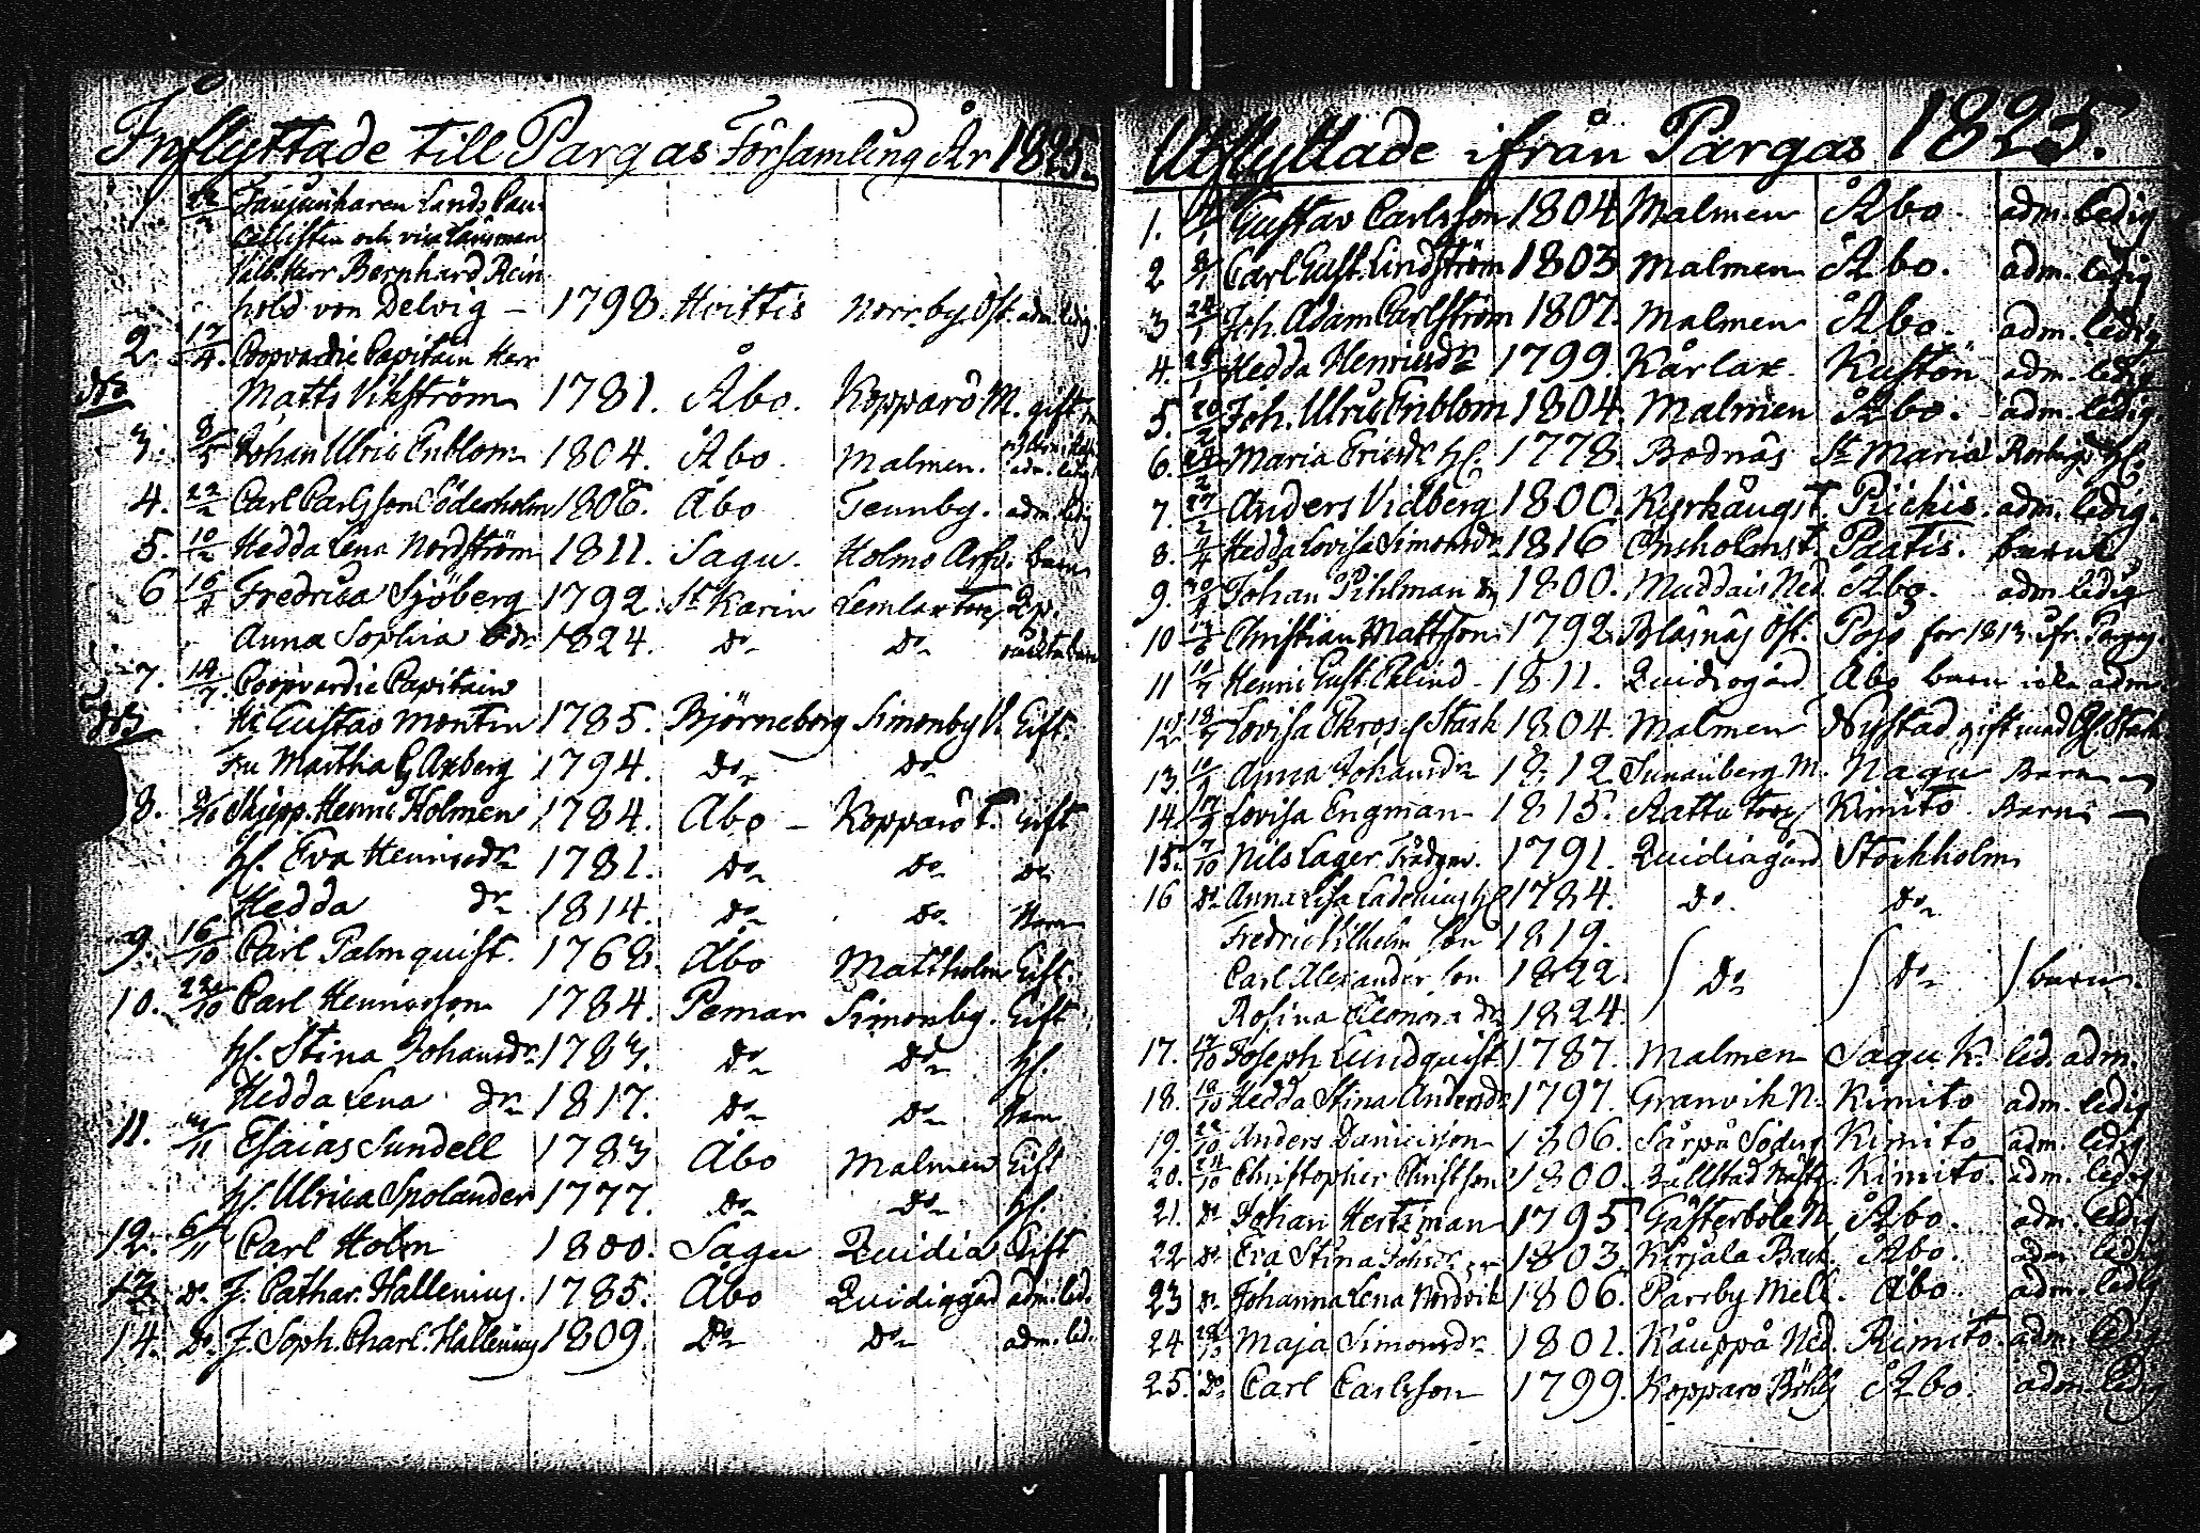 Inflyttade till Pargas Församling År 1825.
22 Fanjunkaren Lands Can-
cellisten och vice Länsman
Välb. Herr Bernhard Rein
hold von Delvig – 1798. Hvittis Norrby Öst. adm. ledig.
2. 17/4. Coopvardie Capitain Herr
Matts Vikström 1781. Åbo. Kopparö M. gift
3. 8/5 Johan Ulric Enblom 1804. Åbo. Malmen. adm. ledig
4. 22/2 Carl Carlsson Söderholm 1806. Åbo Tennby. adm. ledig
5. 10/2 Hedda Lena Nordström 1811. Sagu. Holmo barn
6 16/4 Fredrica Sjöberg 1792. St Karin Lemlax Torp
Anna Sophia dr 1824. do do
7. 14/7. Coopvardie Capitain
Hr Gustaf Montin 1785. Björneborg Simonby V. Gift.
Fru Martha G. Axberg 1794. do do
8. 9/10 Skepp. Henric Holmen 1784. Åbo – Kopparö T. Gift
H. Eva Henricsdr 1781. do do do
Hedda dr 1814. do do Barn
9. 16/10 Carl Palmquist. 1768. Åbo Mattholm Gift.
10. 22/10 Carl Henricsson 1784. Pemar Simonby. Gift
H. Stina Johansdr 1783. do do H.
Hedda Lena dr 1817. do do Barn
11. 4/11 Esaias Sundell 1783 Åbo Malmen Gift
H. Ulrica Spolander 1777. do do H.
12. 6/11 Carl Holm 1800. Sagu Quidia Gift
13 do J. Cathar. Hallenius. 1785. Åbo Quidiagård adm. led.
14. do J. Soph. Charl. Hallenius 1809. do do adm. led.
Utflyttade ifrån Pargas 1825.
1. Gustav Carlsson 1804 Malmen Åbo. adm. ledig
2 Carl Gust. Lindström 1803 Malmen Åbo. adm. ledig
3 22/1 Joh. Adam Carlström 1807. Malmen Åbo. adm. ledig
4. 28/1 Hedda Henricsdr 1799. Kårlax. Kustön adm. ledig
5. 20/2 Joh. Ulric Enblom 1804. Malmen Åbo. adm. ledig.
6. Maria Ericsdr H. 1778. Bodnäs St Maria
7. 27/2 Anders Vidberg 1800. Kyrkångst. Piickis. adm. ledig.
8. Hedda Lovisa Simonsdr 1816 Ensholmst. Paatis. barn
9. Johan Pihlman 1800. Muddais Ned. Åbo. adm. ledig
10 Christian Mattsson 1792. Bläsnäs Öst. Pojo for 1813 ifr. Pargas.
11 Henric Gust. Eklind – 1811. Quidiagård Åbo barn icke adm.
12. Lovisa Ekros Stark 1804. Malmen Nystad gift med Stark
13. Anna Johansdr 1812. Sunnanberg M. Nagu Barn –
14. Lovisa Engman – 1815. Kimito Barn –
15. 7/10 Nils Lager Trädgm. 1791. Quidiagård Stockholm
16 do Anna Lisa Ladenius H. 1784. do do
Fredric Vilhelm son 1819.
Carl Alexander son 1822. do do barn.
Rosina Eleonora dr 1824.
17. 17/10 Joseph Lundquist 1787. Malmen Sagu K. led. adm.
18. Hedda Stina Andersdr 1797. Granvik N. Kimito adm. ledig
19. 22/10 Anders Danielsson 1806. Särpå Söderg. Kimito adm. ledig
20. 24/10 Christopher Christsson 1800. Kimito. adm. ledig.
21. do Johan Hertzman 1795. Gästerbole N. Åbo. adm. ledig
22 do Eva Stina Johsdr 1803. Kirjala Back. Åbo. adm. ledig
23 do Johanna Lena Nordvik 1806. Parsby Mell. Åbo. adm. ledig
24 28/10 Maja Simonsdr 1801. Kåuppå Ned. Kimito. adm. ledig
25. do Carl Carlsson 1799. Kopparö Åbo. adm. ledig